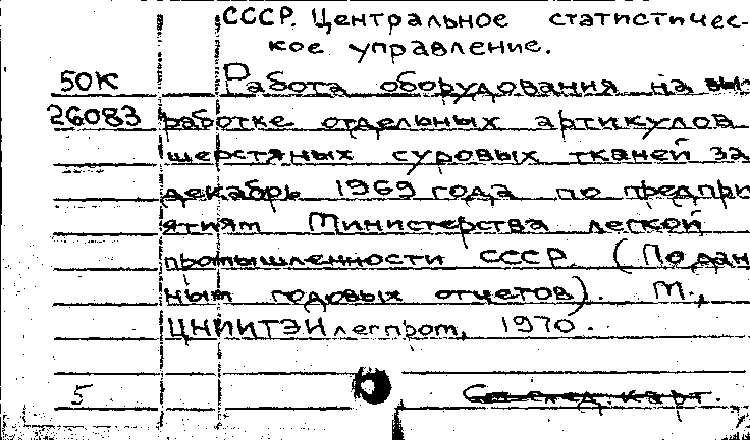 СССР. Центральное статистичес-
кое управление.
50К Работа оборудования на вы-
26083 работке отдельных артикулов
шерстяных суровых тканей за
декабрь 1969 года по предпри
ятиям Министерства легкой
промышленности СССР. (По дан
ным годовых отчетов). М.,
ЦНИИТЭИлегпром, 1970.
5 См. след. карт.